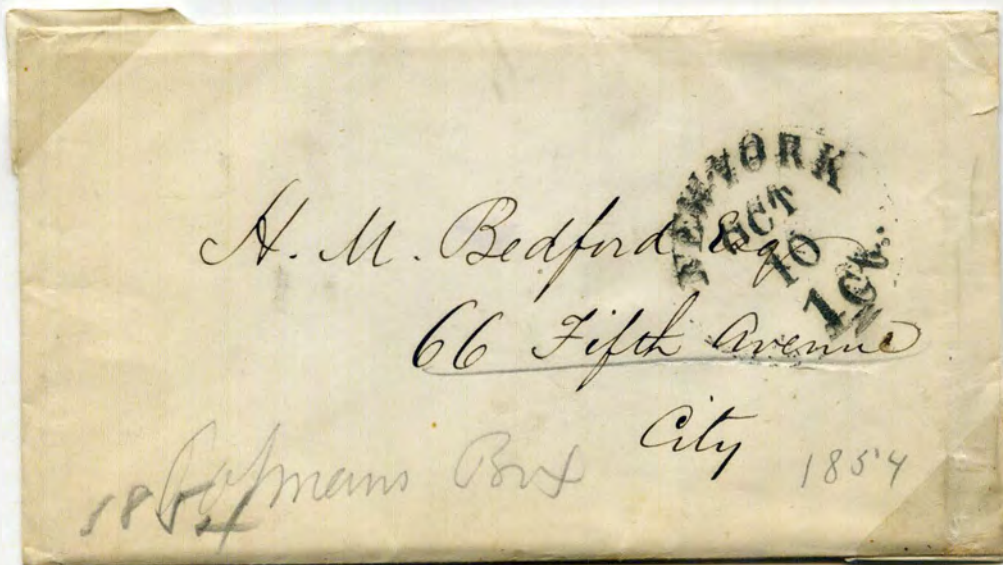 NEW YORK
OCT
10
1 Ct.
H. M. Bedford Esq
66 Fifth Avenue
City
1854
Box
1854